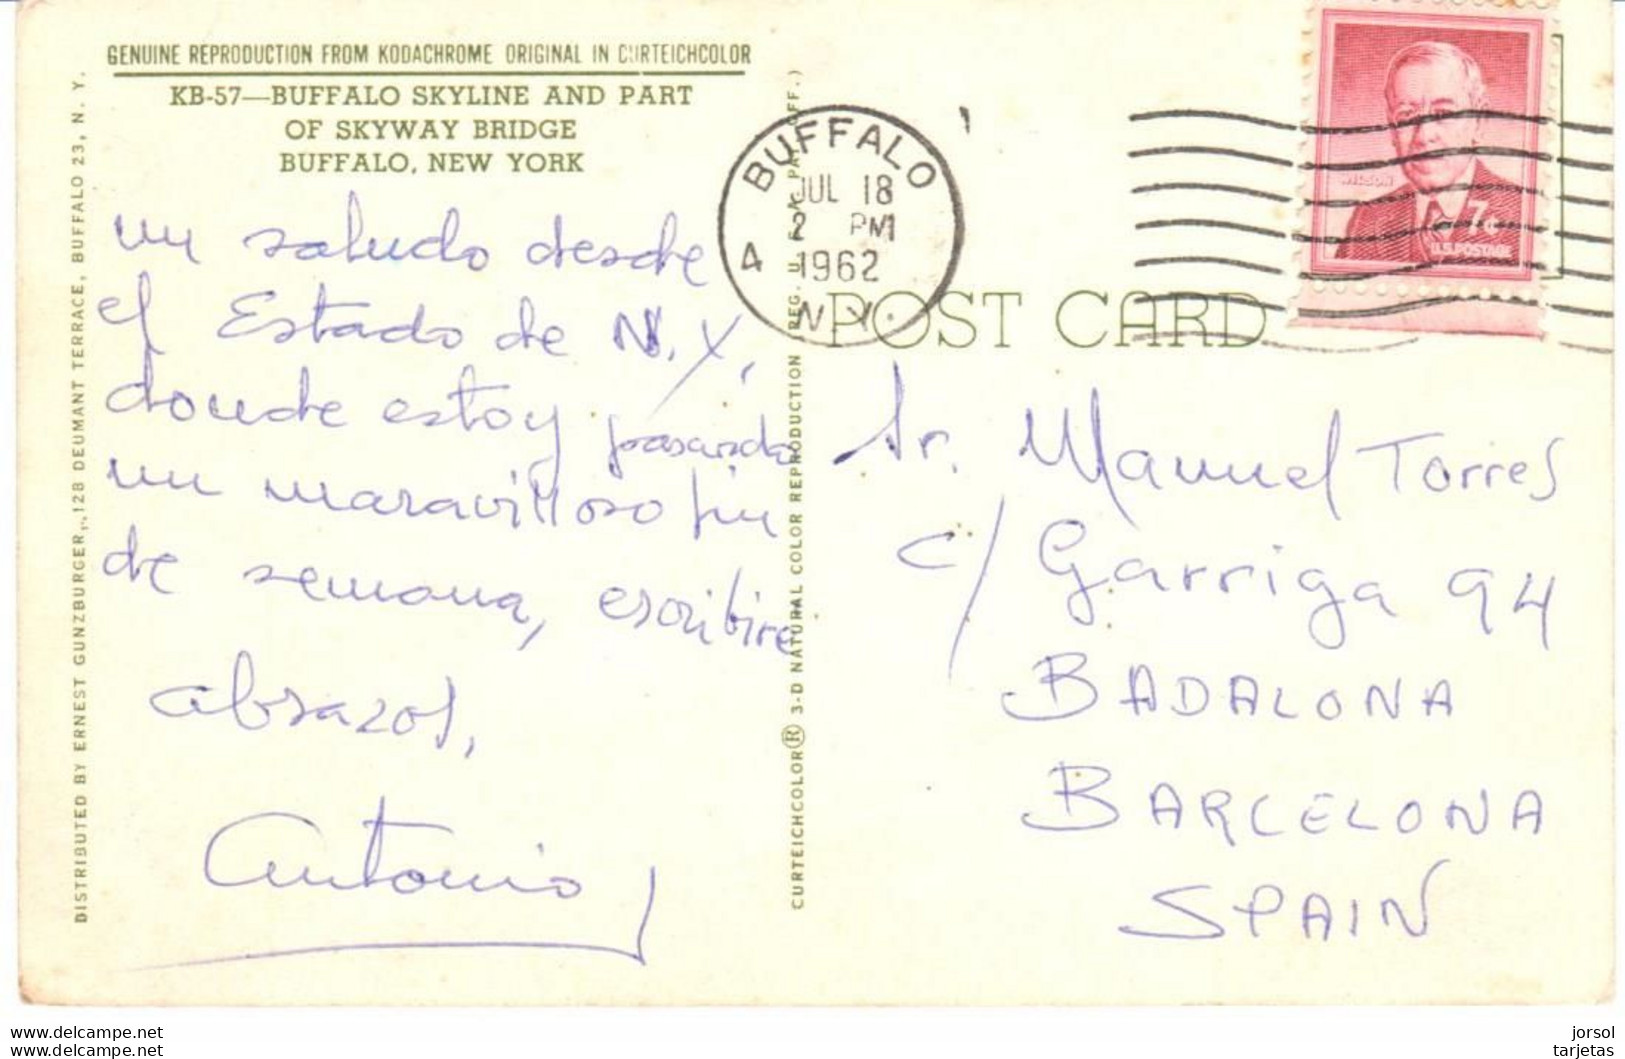 GENUINE REPRODUCTION FROM KODACHROME ORIGINAL IN CURTEICHCOLOR
KB-57—BUFFALO SKYLINE AND PART
OF SKYWAY BRIDGE
BUFFALO, NEW YORK
un saludo desde
el Estado de N.Y.,
donde estoy pasando
un maravilloso fin
de semana, escribire
abrazos,
Antonio
DISTRIBUTED BY ERNEST GUNZBURGER, 128 DEUMANT TERRACE, BUFFALO 23, N. Y.
CURTEICHCOLOR® 3-D NATURAL COLOR REPRODUCTION REG. U. S. A. PAT. OFF.)
BUFFALO
JUL 18
2 PM
1962
4 N.Y.
WILSON
7¢
U.S. POSTAGE
POST CARD
Sr. Manuel Torres
c/ Garriga 94
BADALONA
BARCELONA
SPAIN
www.delcampe.net
www.delcampe.net
jorsol
tarjetas